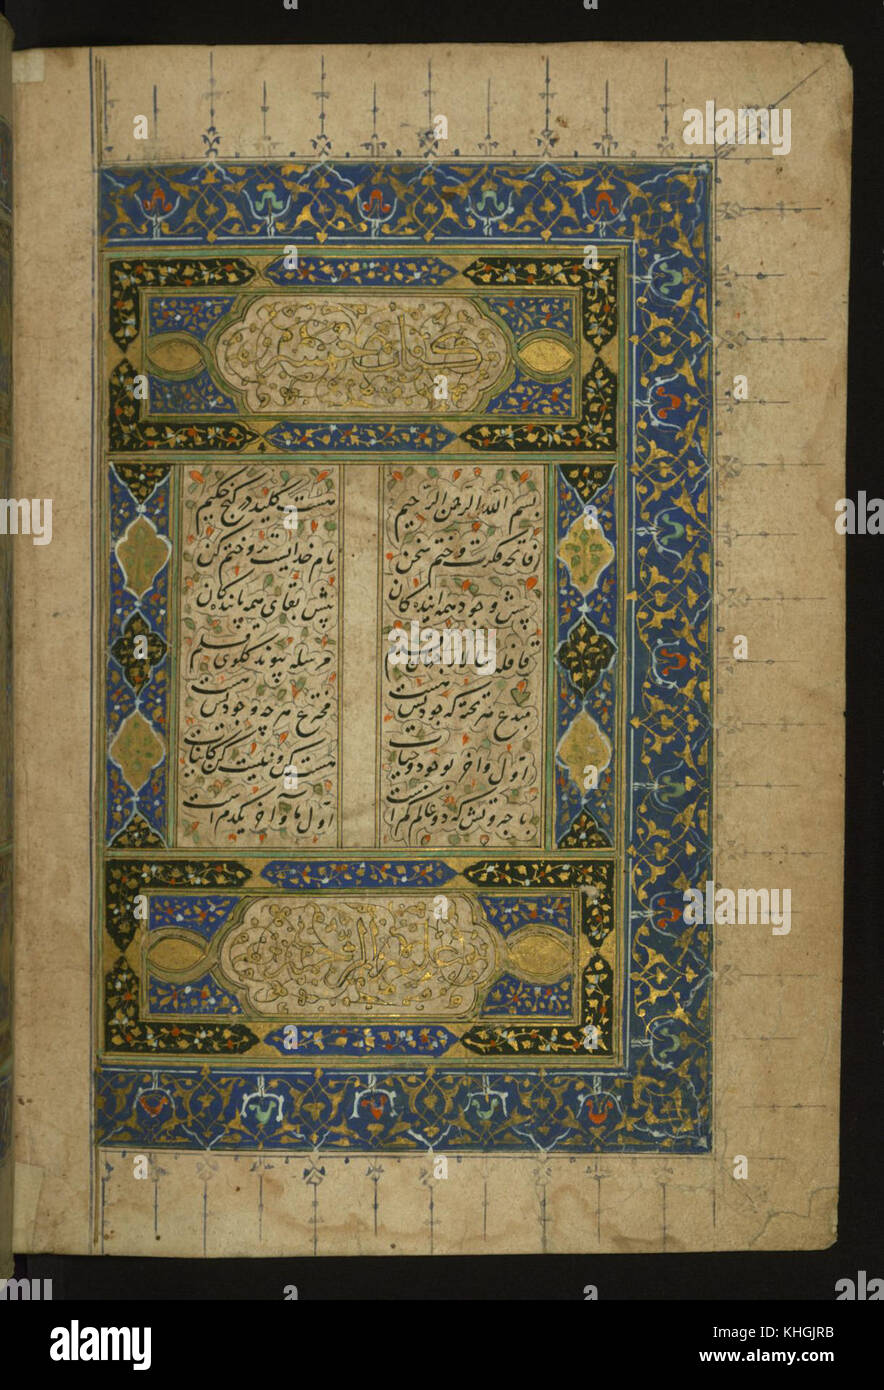 کتاب خمسه
بسم الله الرحمن الرحیم هست کلید در گنج حکیم
فاتحه فکرت و ختم سخن نام خدایست برو ختم کن
پیش وجود همه آیندگان بیش بقای همه پایندگان
قافله سالار جهان قدم مرسله پیوند گلوی قلم
مبدع هر که جودیش هست مخترع هر چه وجودیش هست
اول و آخر بوجود و حیات هست کن و نیست کن کاینات
با جبروتش که دو عالم کم است اول ما و آخر ما یکدم است
alamy
KHGJRB
www.alamy.com